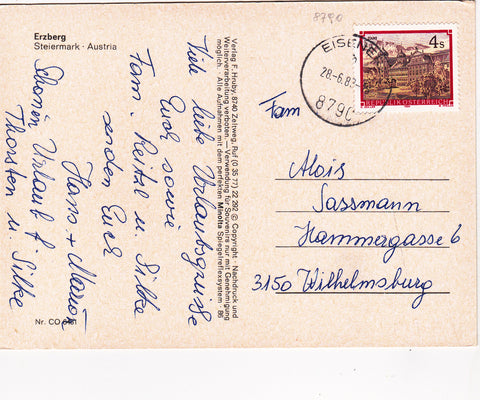 Erzberg
Steiermark · Austria
Viele liebe Urlaubsgrüsse
Euch sowie
Fam. Reitzl u. Silke
senden Euch
Hans + Marion
Schönen Urlaub f.
Thorsten u. Silke
Nr. CO
Verlag F. Hruby, 8740 Zeltweg, Ruf (0 35 77) 22 292 © Copyright · Nachdruck und
Weiterverarbeitung verboten. — Verwendung für Souvenirs nur mit Genehmigung
möglich. Alle Aufnahmen mit dem perfekten Minolta Spiegelreflexsystem · 86
8790
EISENE
28.-6.8
8790
4 S
REPUBLIK ÖSTERREICH
Fam
Alois
Sassmann
Hammergasse 6
3150 Wilhelmsburg